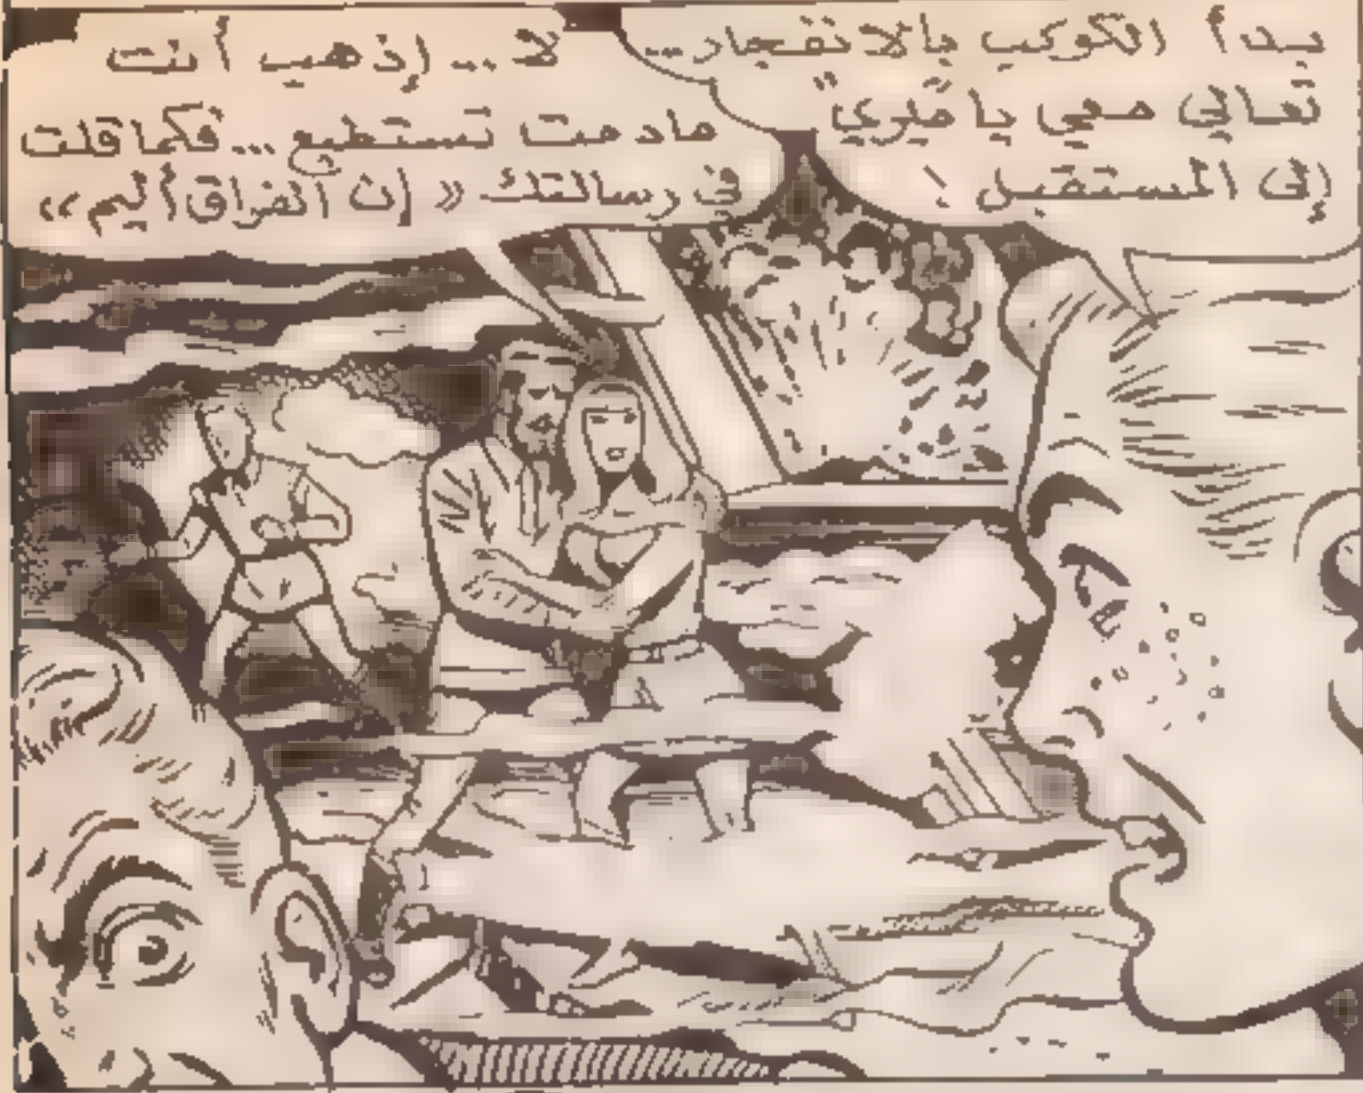 يبدأ الكوكب بالانفجار...
تعالي معي يا ميري
إلى المستقبل !
لا... إذهب أنت
مادمت تستطيع... فكما قلت
في رسالتك « إن الفراق أليم »